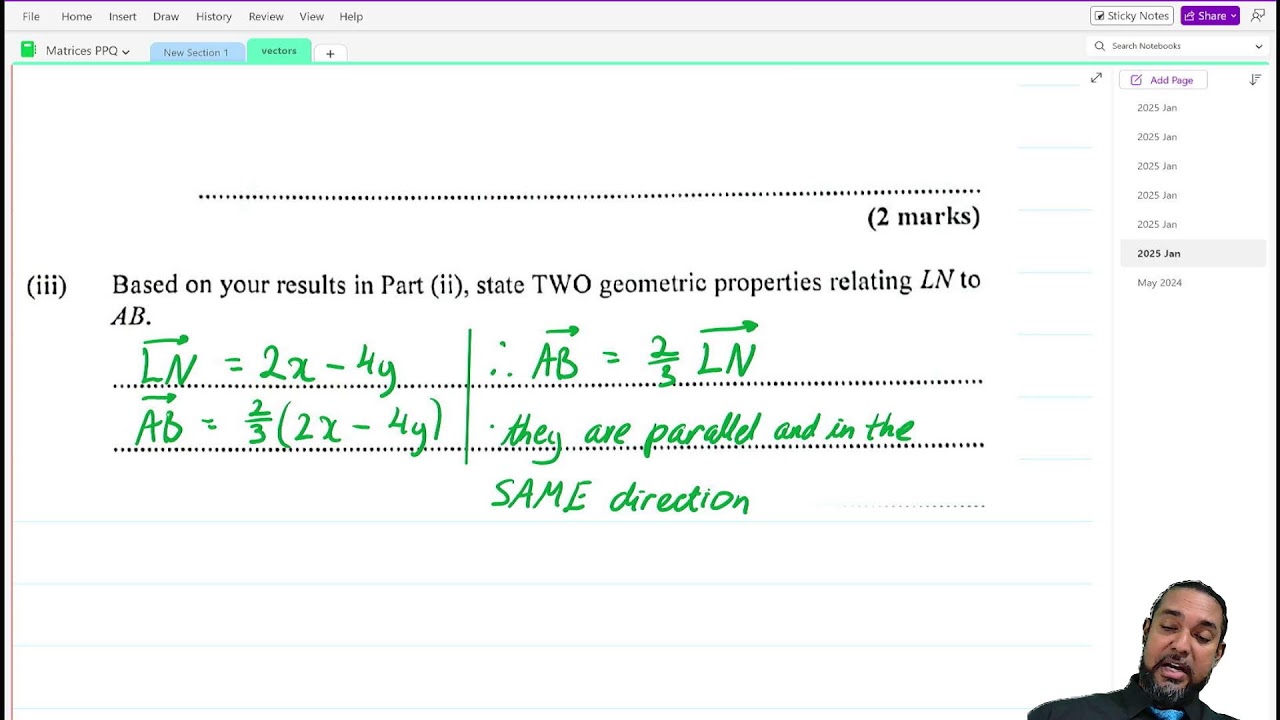 File Home Insert Draw History Review View Help Sticky Notes Share
Matrices PPQ New Section 1 vectors + Search Notebooks
Add Page
2025 Jan
2025 Jan
2025 Jan
2025 Jan
2025 Jan
2025 Jan
May 2024
(2 marks)
(iii) Based on your results in Part (ii), state TWO geometric properties relating LN to
AB.
LN = 2x - 4y
AB = 2/3 (2x - 4y)
∴ AB = 2/3 LN
· they are parallel and in the
SAME direction